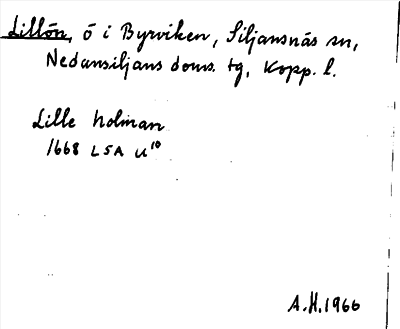 Lillön, ö i Byrviken, Siljansnäs sn,
Nedansiljans doms. tg, Kopp. l.
Lille holman
1668 LSA U¹⁰
A.H. 1966